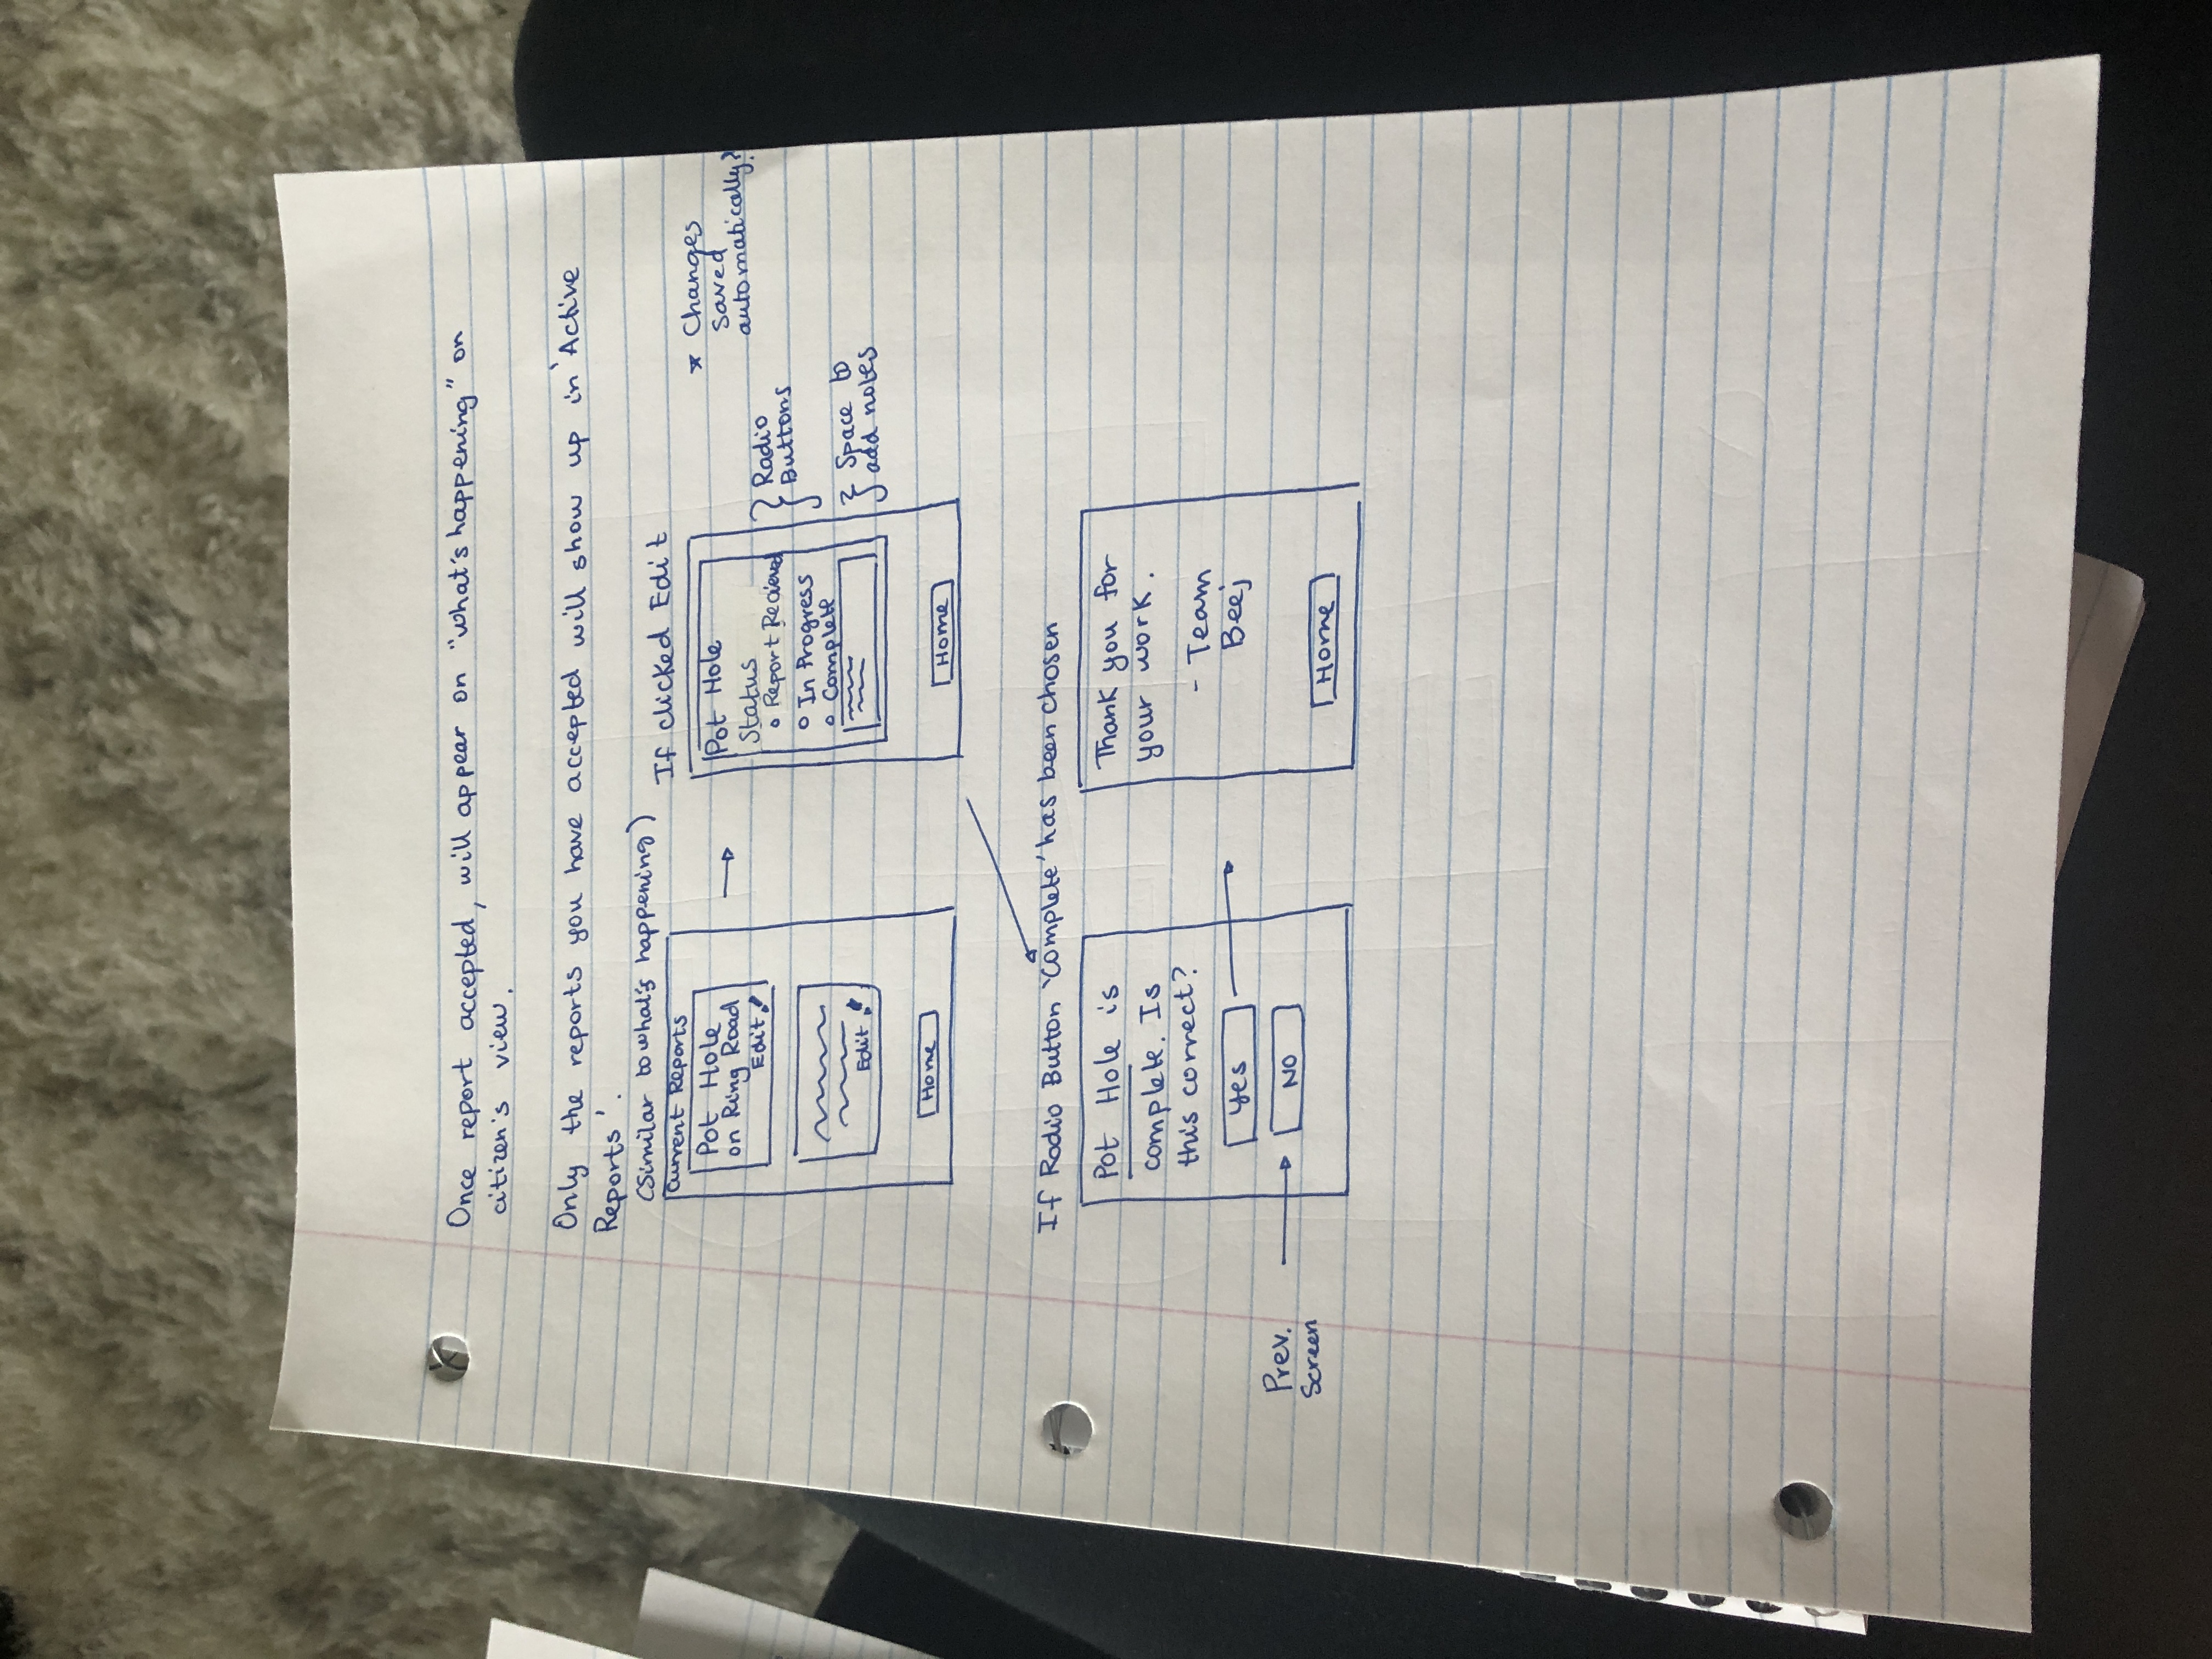 Once report accepted, will appear on "what's happening" on
citizen's view.
Only the reports you have accepted will show up in 'Active
Reports'.
(Similar to what's happening)
Current Reports
Pot Hole
on Ring Road
Edit
Edit
Home
If clicked Edit
Pot Hole
Status
Report Recieved
In Progress
Complete
Home
* Changes
saved
automatically?
Radio
Buttons
Space to
add notes
If Radio Button 'Complete' has been chosen
Pot Hole is
complete. Is
this correct?
Yes
NO
Prev.
Screen
Thank you for
your work.
- Team
Beej
Home